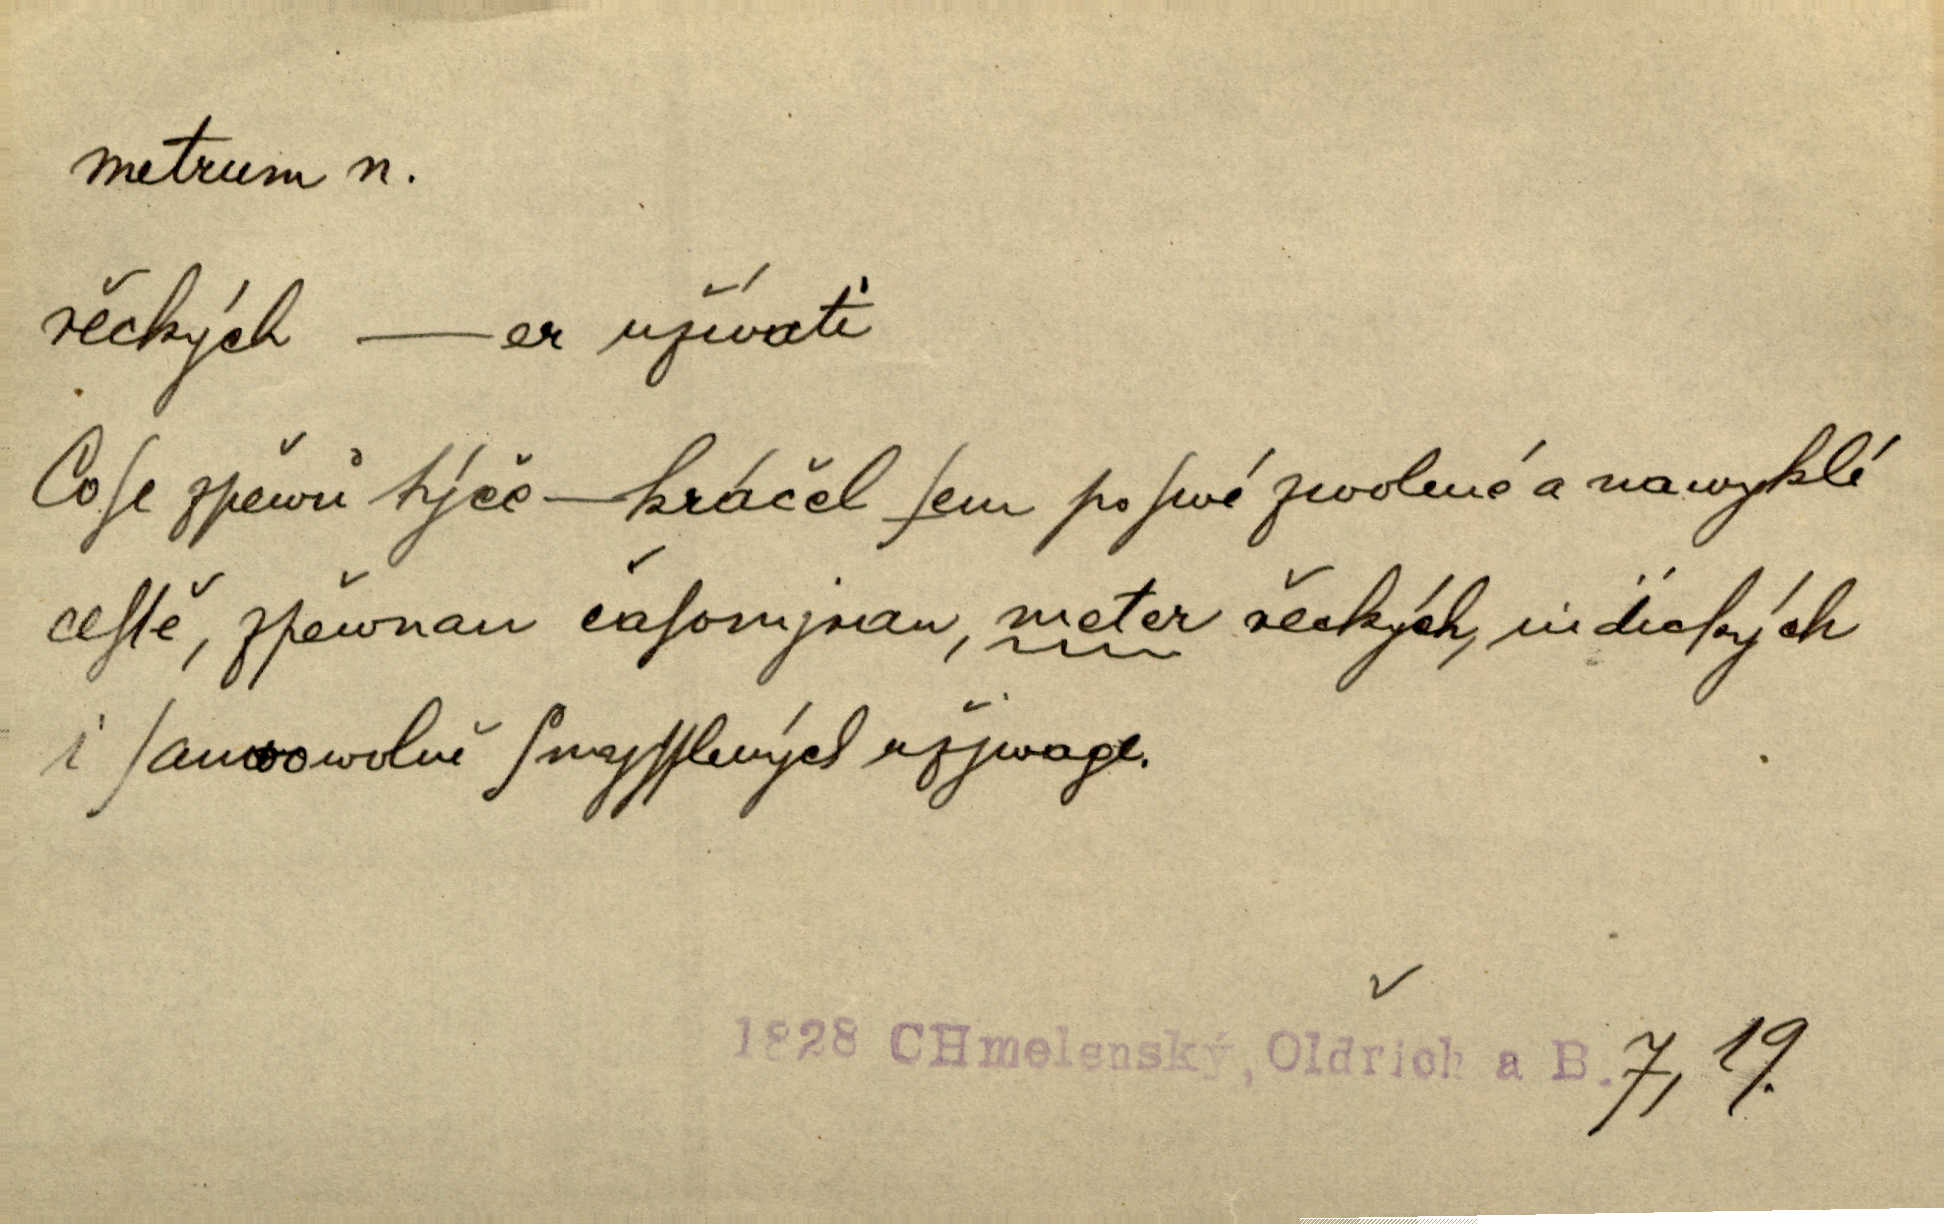 metrum n.
řeckých — er užívati
Co ſe zpěwů týče — kráčel ſem po ſwé zwolené a nawyklé
ceſtě, zpěwnau časomjrau, meter řeckých, indických
i ſamowolně ſmyſſlených užjwage.
1828 CHmelenský, Oldřich a B. 7, 19.